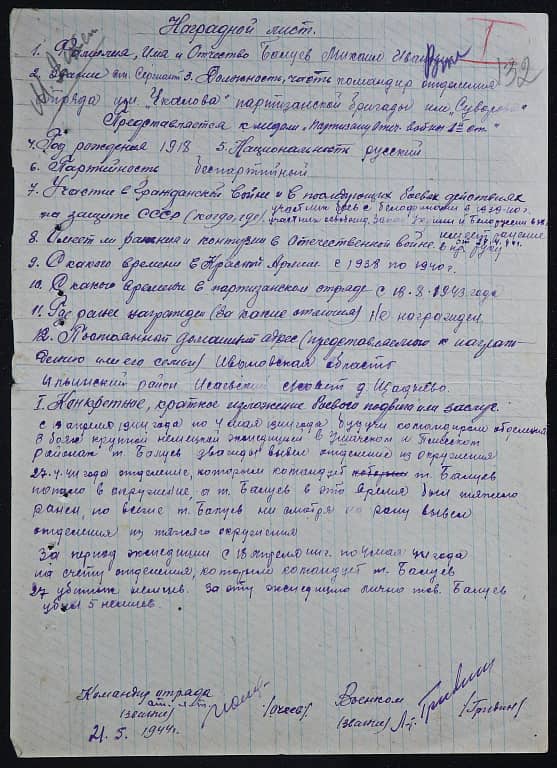 Наградной лист.
132
1. Фамилия, Имя и Отчество Балуев Михаил Иванович
2. Звание ст. Сержант 3. Должность, часть командир отделения
отряда им. "Чкалова" партизанской бригады им. "Суворова"
Представляется к медали "Партизану Отеч. войны I ой ст."
4. Год рождения 1918 5. Национальность русский
6. Партийность беспартийный
7. Участие в Гражданской войне и в последующих боевых действиях
на защите СССР (когда, где) участник боев с белофиннами в 1939-40 г.
участник освобожд. Запад. Украины и Белоруссии в
8. Имеет ли ранения и контузии в Отечественной войне имеет ранение
в руку 27.4.44 г.
9. С какого времени в Красной Армии с 1938 по 1940 г.
10. С какого времени в партизанском отряде с 18.8.1943 года
11. Где ранее награжден (за какие отличия) Не награжден
12. Постоянный домашний адрес (представляемого к награж-
дению или его семьи) Ивановская область
Ильинский район Исаевский с/совет д. Щаднево.
I. Конкретное, краткое изложение боевого подвига или заслуг
с 19 апреля 1944 года по 4 мая 1944 года будучи командиром отделения
в боях крупной немецкой экспедицией в Ушачском и
районах т. Балуев дважды вывел отделение из окружения
27.4.44 года отделение, которым командует т. Балуев
попало в окружение, а т. Балуев в это время был тяжело
ранен, но все же т. Балуев не смотря на рану вывел
отделения из тяжелого окружения
За период экспедиции с 18 апреля по 4 мая 44 года
на счету отделения, которым командует т. Балуев
27 убитых немцев. За эту экспедицию лично тов. Балуев
убил 5 немцев.
Командир отряда
ст. л-т.
(звание)
21.5.1944 г.
Военком
(звание) Л-т. Гривин /Гривин/